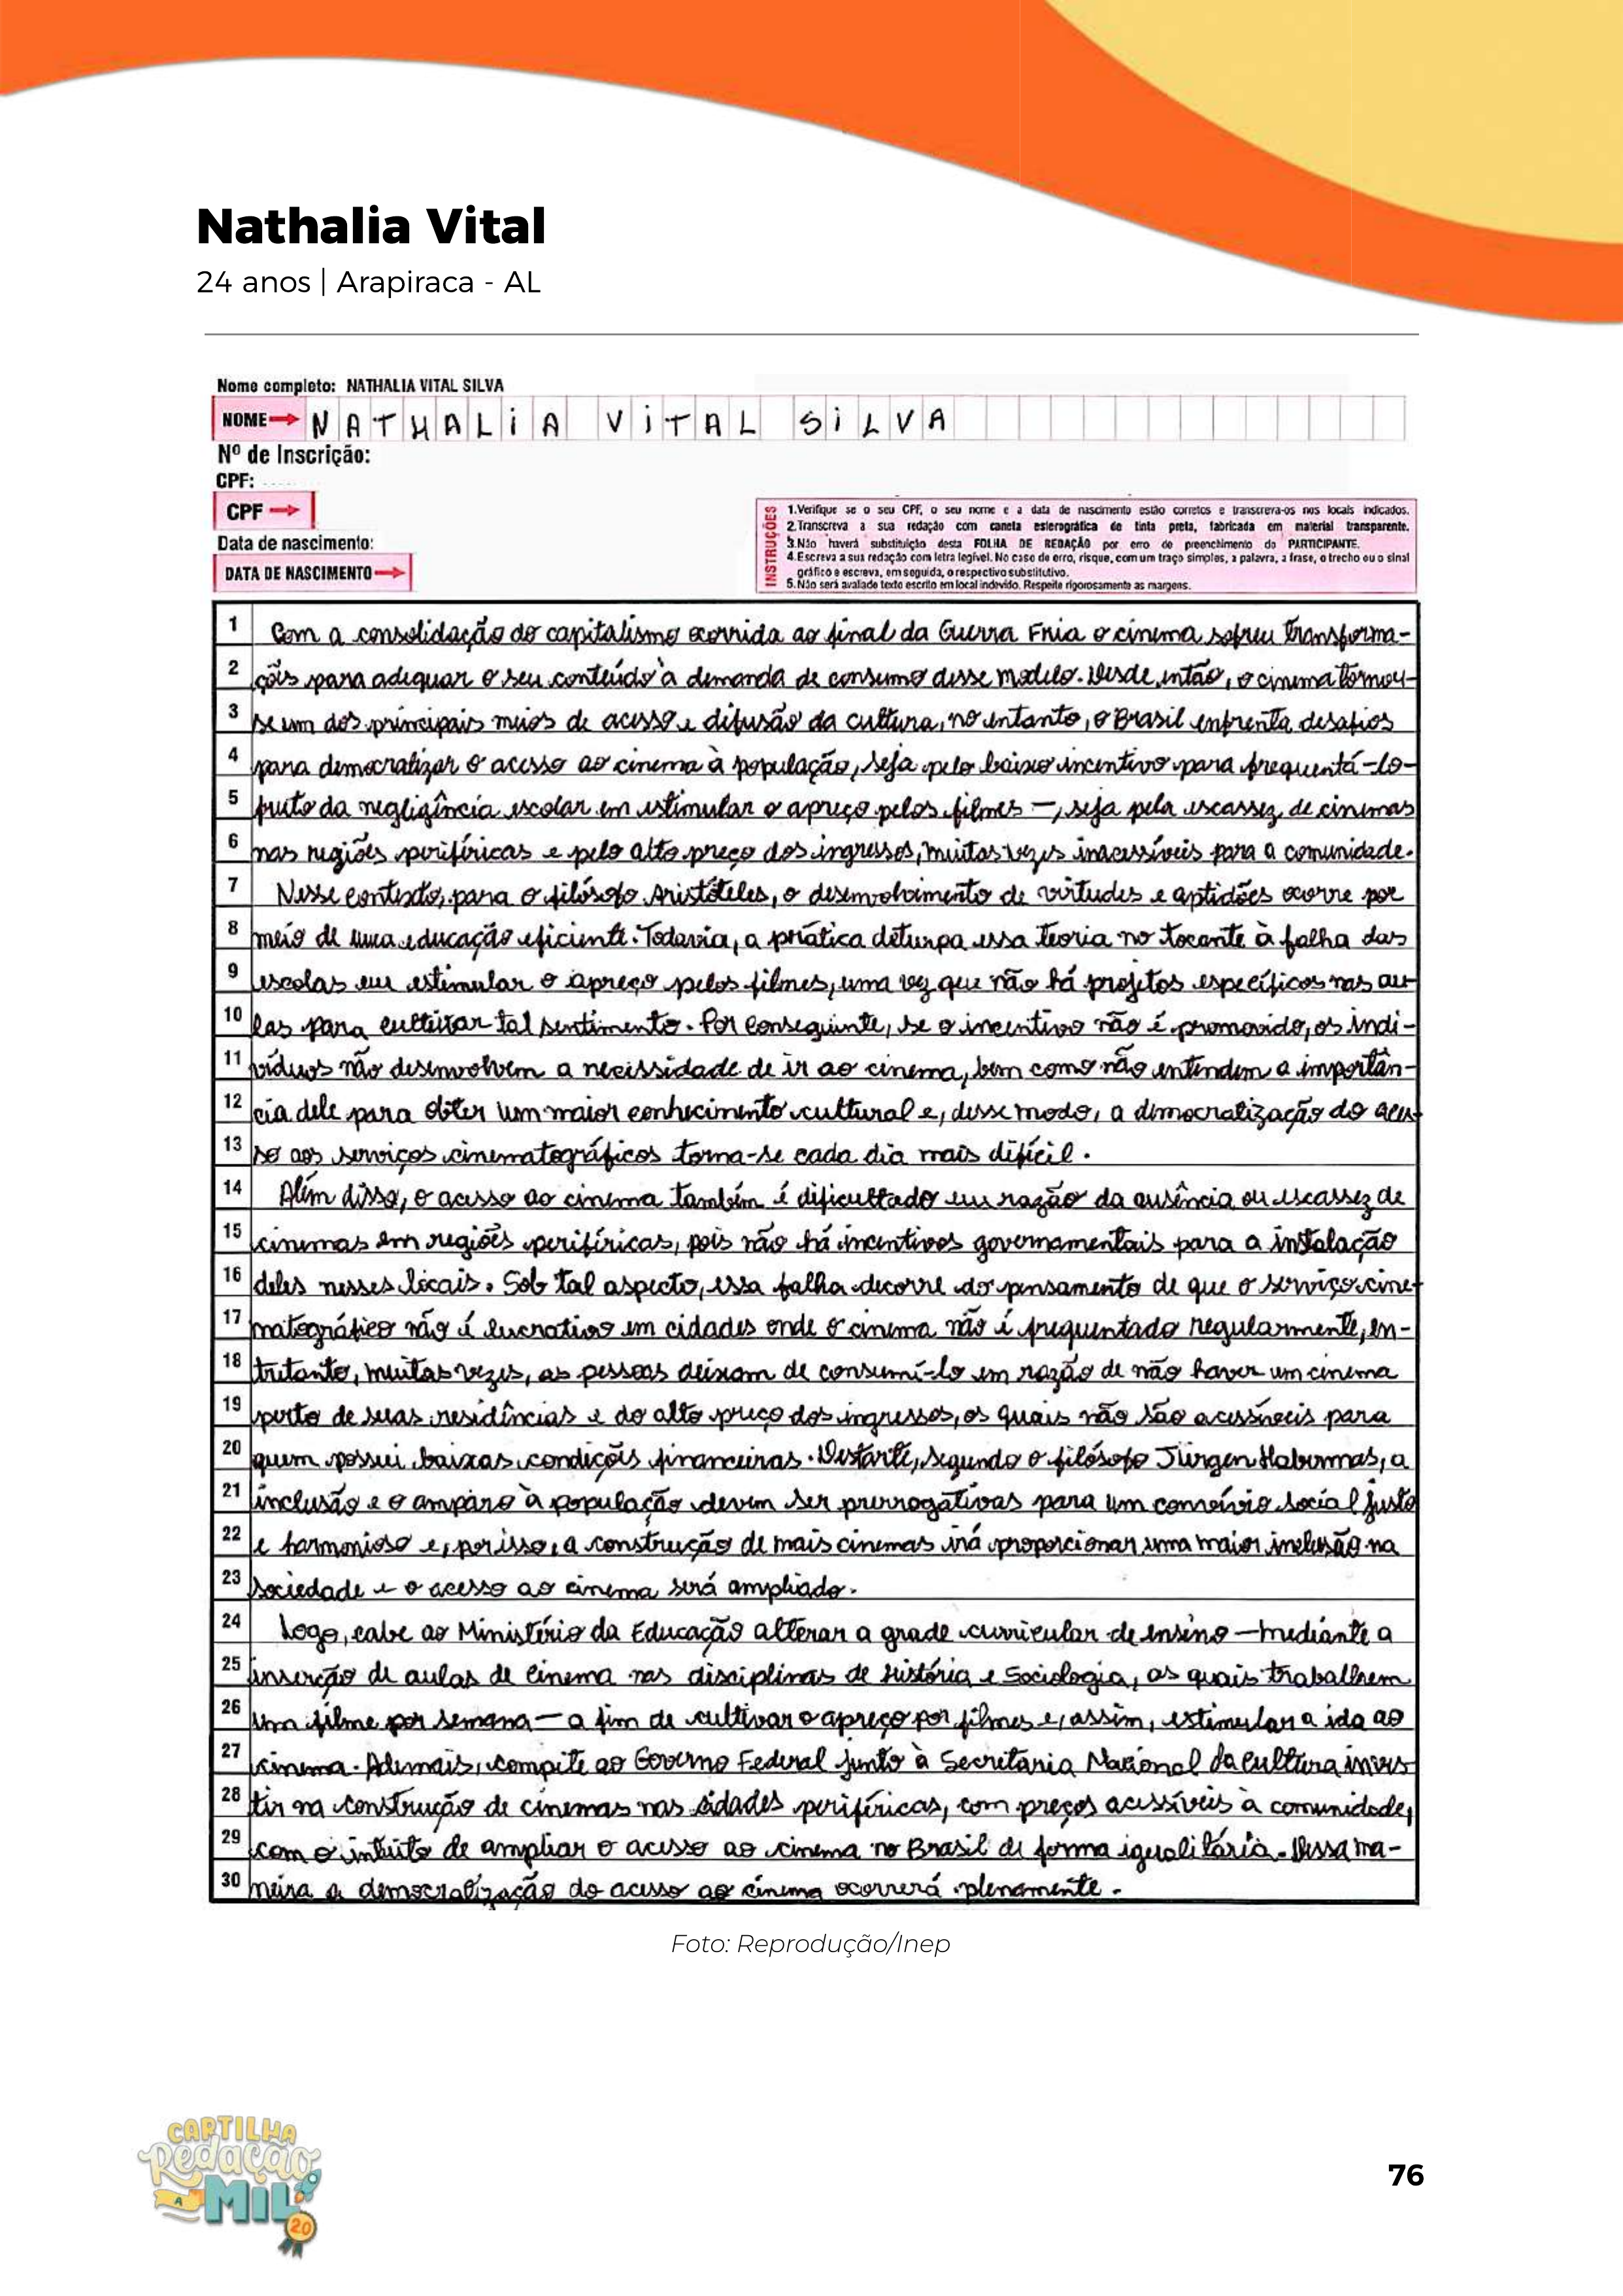 Nathalia Vital
24 anos | Arapiraca - AL
Nome completo: NATHALIA VITAL SILVA
NOME NATHALIA VITAL SILVA
Nº de Inscrição:
CPF:
CPF
Data de nascimento:
DATA DE NASCIMENTO
INSTRUÇÕES
1.Verifique se o seu CPF, o seu nome e a data de nascimento estão corretos e transcreva-os nos locais indicados.
2.Transcreva a sua redação com caneta esferográfica de tinta preta, fabricada em material transparente.
3.Não haverá substituição desta FOLHA DE REDAÇÃO por erro de preenchimento do PARTICIPANTE.
4.Escreva a sua redação com letra legível. No caso de erro, risque, com um traço simples, a palavra, a frase, o trecho ou o sinal
gráfico e escreva, em seguida, o respectivo substitutivo.
5.Não será avaliado texto escrito em local indevido. Respeite rigorosamente as margens.
1 Com a consolidação do capitalismo ocorrida ao final da Guerra Fria o cinema sofreu transforma-
2 ções para adequar o seu conteúdo à demanda de consumo desse modelo. Desde então, o cinema tornou-
3 se um dos principais meios de acesso e difusão da cultura, no entanto, o Brasil enfrenta desafios
4 para democratizar o acesso ao cinema à população, seja pelo baixo incentivo para frequentá-lo-
5 fruto da negligência escolar em estimular o apreço pelos filmes —, seja pela escassez de cinemas
6 nas regiões periféricas e pelo alto preço dos ingressos, muitas vezes inacessíveis para a comunidade.
7 Nesse contexto, para o filósofo Aristóteles, o desenvolvimento de virtudes e aptidões ocorre por
8 meio de uma educação eficiente. Todavia, a prática deturpa essa teoria no tocante à falha das
9 escolas em estimular o apreço pelos filmes, uma vez que não há projetos específicos nas au-
10 las para cultivar tal sentimento. Por conseguinte, se o incentivo não é promovido, os indi-
11 víduos não desenvolvem a necessidade de ir ao cinema, bem como não entendem a importân-
12 cia dele para obter um maior conhecimento cultural e, desse modo, a democratização do aces-
13 so aos serviços cinematográficos torna-se cada dia mais difícil.
14 Além disso, o acesso ao cinema também é dificultado em razão da ausência ou escassez de
15 cinemas em regiões periféricas, pois não há incentivos governamentais para a instalação
16 deles nesses locais. Sob tal aspecto, essa falha decorre do pensamento de que o serviço cine-
17 matográfico não é lucrativo em cidades onde o cinema não é frequentado regularmente, en-
18 tretanto, muitas vezes, as pessoas deixam de consumí-lo em razão de não haver um cinema
19 perto de suas residências e do alto preço dos ingressos, os quais não são acessíveis para
20 quem possui baixas condições financeiras. Destarte, segundo o filósofo Jürgen Habermas, a
21 inclusão e o amparo à população devem ser prerrogativas para um convívio social justo
22 e harmonioso e, por isso, a construção de mais cinemas irá proporcionar uma maior inclusão na
23 sociedade e o acesso ao cinema será ampliado.
24 Logo, cabe ao Ministério da Educação alterar a grade curricular de ensino — mediante a
25 inserção de aulas de cinema nas disciplinas de História e Sociologia, as quais trabalhem
26 um filme por semana — a fim de cultivar o apreço por filmes e, assim, estimular a ida ao
27 cinema. Ademais, compete ao Governo Federal junto à Secretaria Nacional da Cultura inves-
28 tir na construção de cinemas nas cidades periféricas, com preços acessíveis à comunidade,
29 com o intuito de ampliar o acesso ao cinema no Brasil de forma igualitária. Dessa ma-
30 neira a democratização do acesso ao cinema ocorrerá plenamente.
Foto: Reprodução/Inep
CARTILHA
Redação
A MIL
20
76